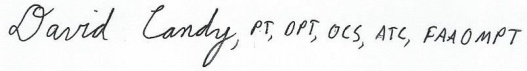 David Candy, PT, DPT, OCS, ATC, FAAOMPT